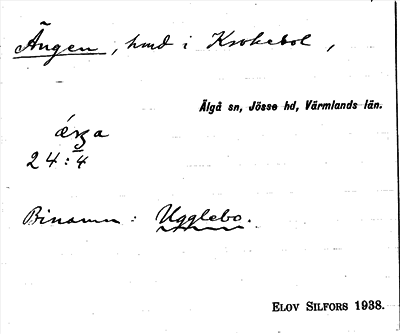 Ängen, hmd i Krokebol,
Älgå sn, Jösse hd, Värmlands län.
24:4
Binamn: Ugglebo.
ELOV SILFORS 1938.